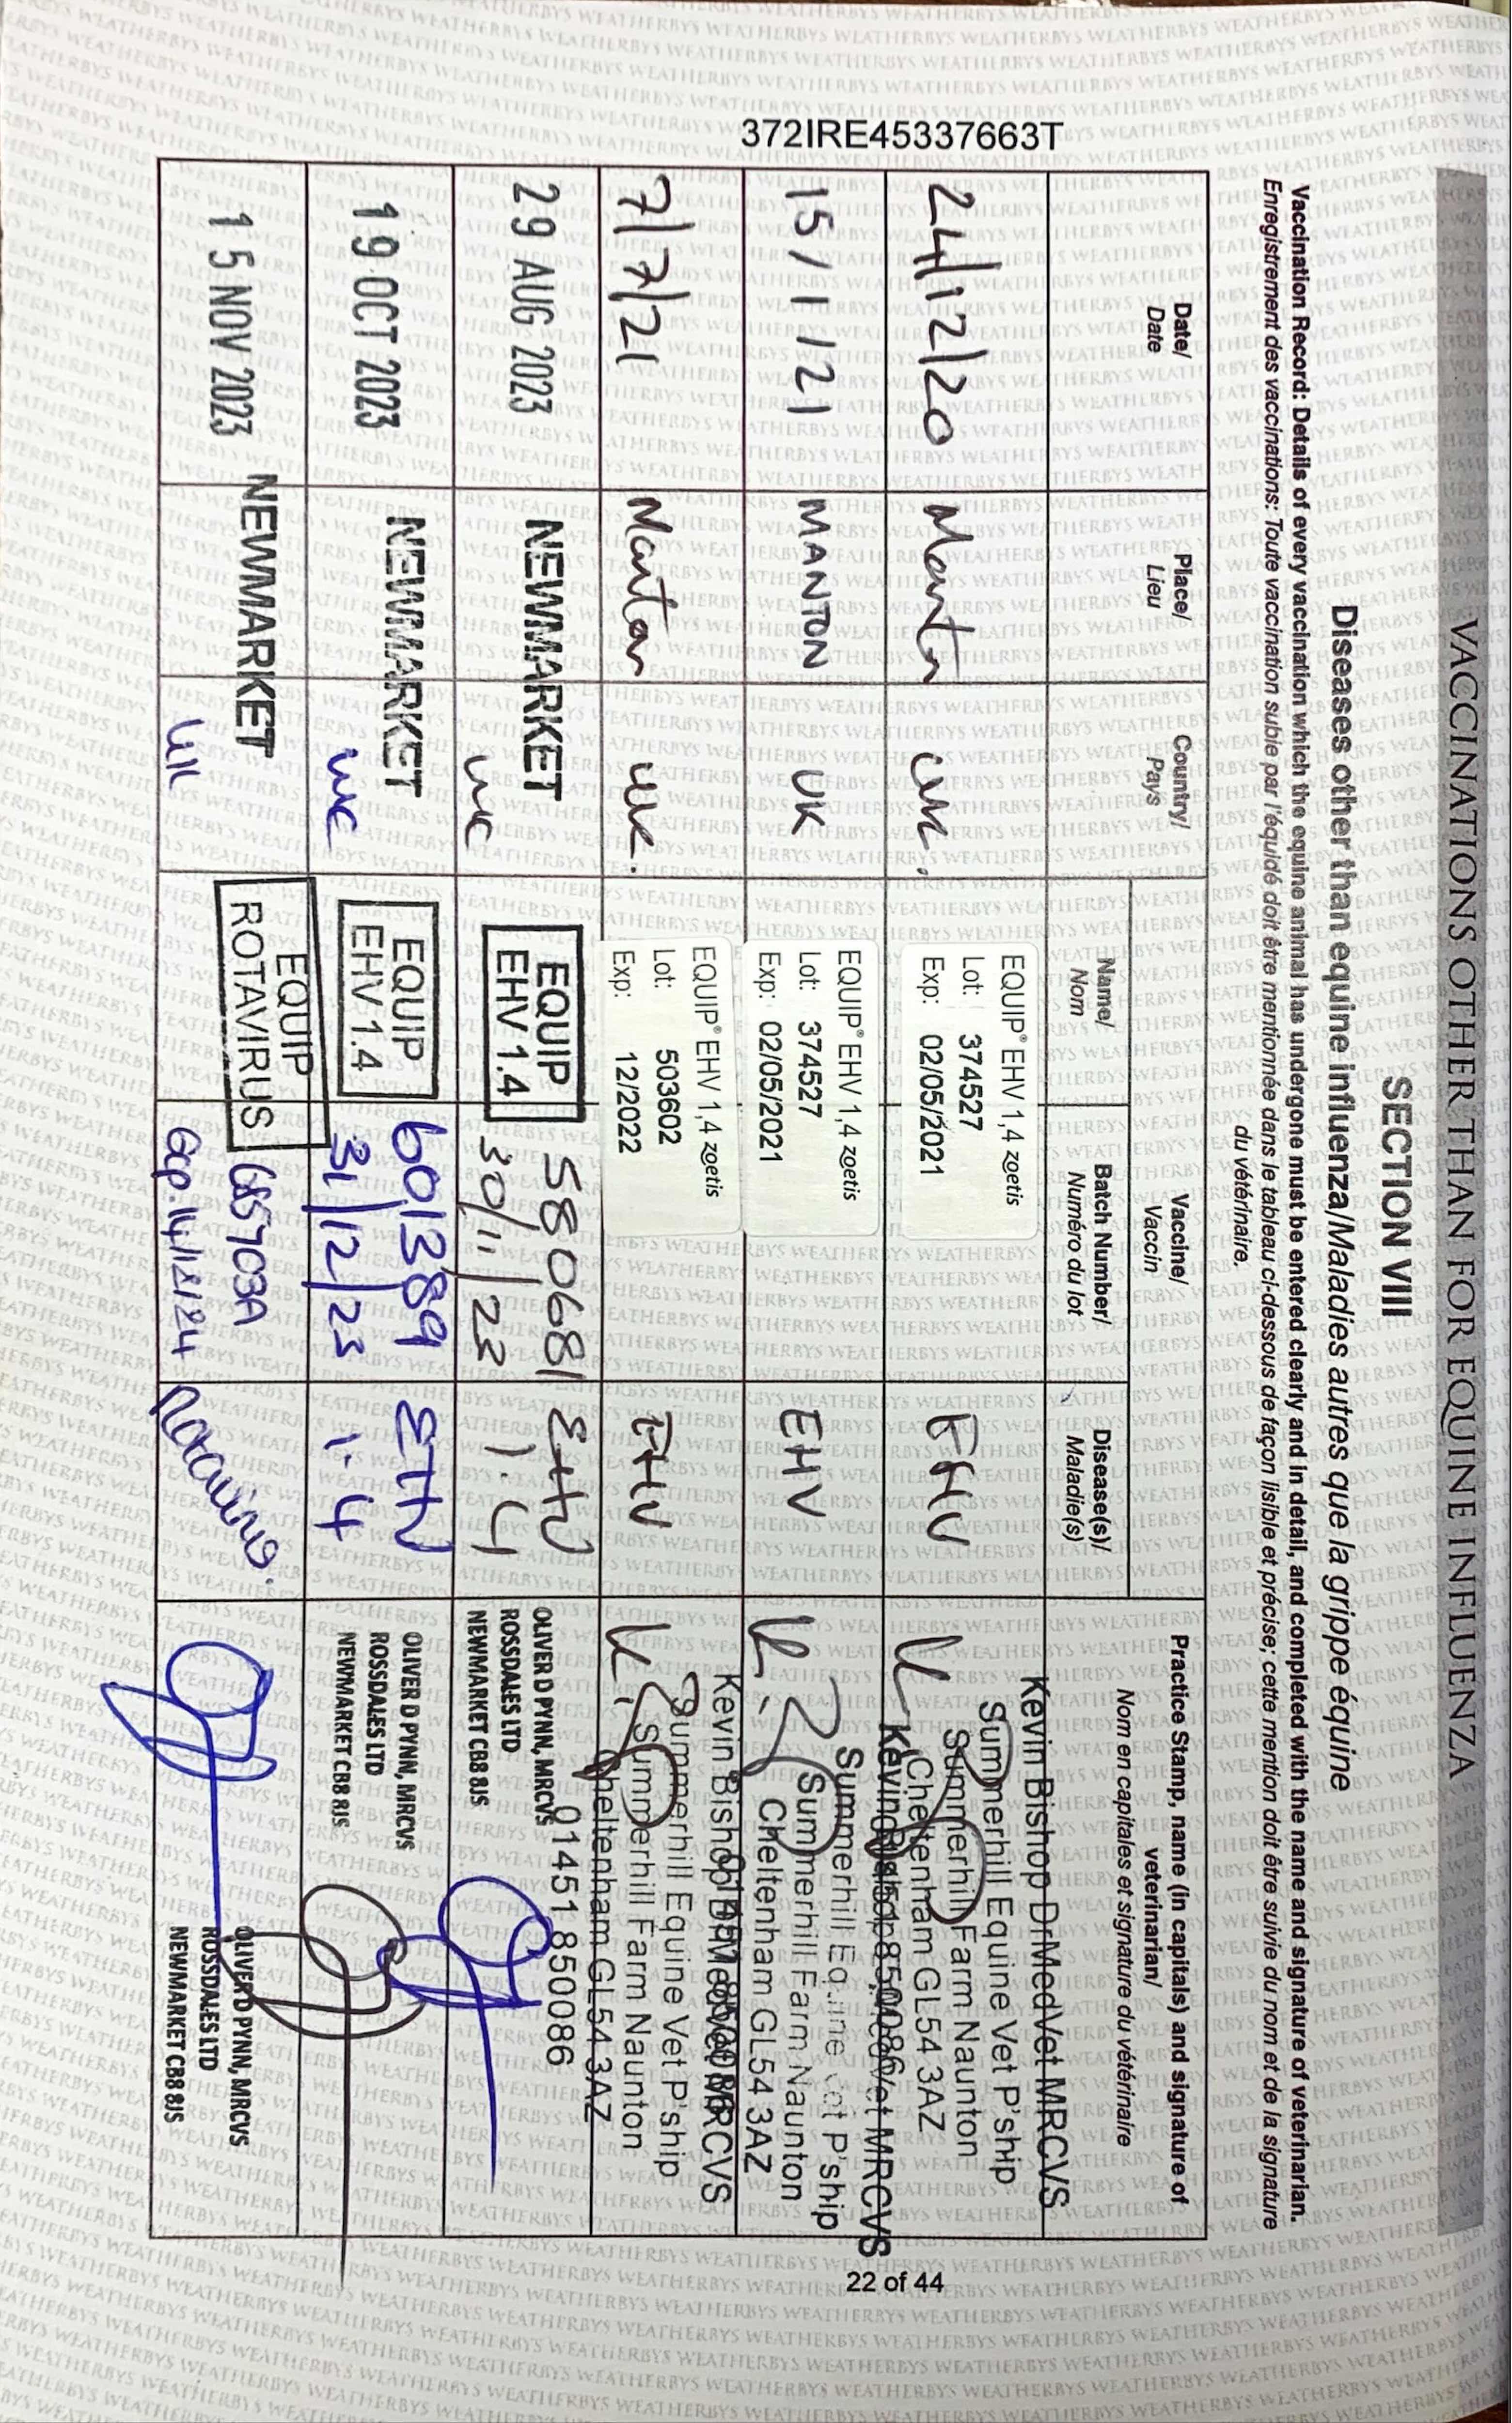 VACCINATIONS OTHER THAN FOR EQUINE INFLUENZA
SECTION VIII
Diseases other than equine influenza/Maladies autres que la grippe équine
Vaccination Record: Details of every vaccination which the equine animal has undergone must be entered clearly and in detail, and completed with the name and signature of veterinarian.
Enregistrement des vaccinations: Toute vaccination subie par l'équidé doit être mentionnée dans le tableau ci-dessous de façon lisible et précise; cette mention doit être suivie du nom et de la signature
du vétérinaire.
Date/
Date
Place/
Lieu
Country/
Pays
Vaccine/
Vaccin
Name/
Nom
Batch Number/
Numéro du lot
Disease(s)/
Maladie(s)
Practice Stamp, name (in capitals) and signature of
veterinarian/
Nom en capitales et signature du vétérinaire
24/12/20
Manton
UK.
EQUIP® EHV 1,4 zoetis
Lot: 374527
Exp: 02/05/2021
EHV
Kevin Bishop DrMedVet MRCVS
Summerhill Equine Vet P'ship
Summerhill Farm Naunton
Cheltenham GL54 3AZ
15/1/21
MANTON
UK
EQUIP® EHV 1,4 zoetis
Lot: 374527
Exp: 02/05/2021
EHV
Summerhill Equine Vet P'ship
Summerhill Farm Naunton
Cheltenham GL54 3AZ
7/7/21
Manton
UK.
EQUIP® EHV 1,4 zoetis
Lot: 503602
Exp: 12/2022
EHV
Summerhill Equine Vet P'ship
Summerhill Farm Naunton
Cheltenham GL54 3AZ
01451 850086
29 AUG 2023
NEWMARKET
UK
EQUIP
EHV 1.4
580681
30/11/23
EHV
1.4
OLIVER D PYNN, MRCVS
ROSSDALES LTD
NEWMARKET CB8 8JS
19 OCT 2023
NEWMARKET
UK
EQUIP
EHV 1.4
601389
31/12/23
EHV
1.4
OLIVER D PYNN, MRCVS
ROSSDALES LTD
NEWMARKET CB8 8JS
15 NOV 2023
NEWMARKET
UK
EQUIP
ROTAVIRUS
685703A
Rotavirus.
OLIVER D PYNN, MRCVS
ROSSDALES LTD
NEWMARKET CB8 8JS
372IRE45337663T
22 of 44